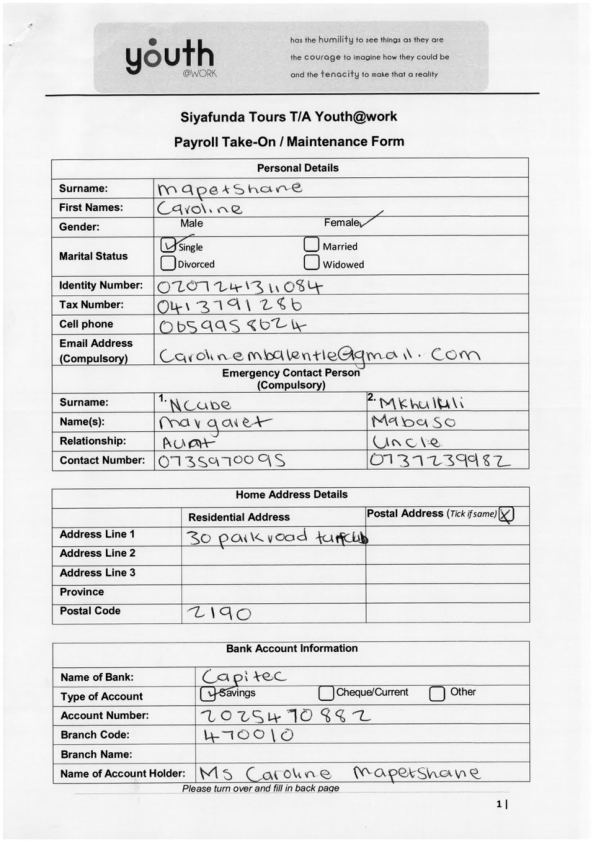 youth
@WORK
has the humility to see things as they are
the courage to imagine how they could be
and the tenacity to make that a reality
Siyafunda Tours T/A Youth@work
Payroll Take-On / Maintenance Form
Personal Details
Surname: mapetshane
First Names: Caroline
Gender: Male Female
Marital Status Single Married
Divorced Widowed
Identity Number: 0207241311084
Tax Number: 0413791286
Cell phone 0659958624
Email Address
(Compulsory) Carolinembalentle@gmail.com
Emergency Contact Person
(Compulsory)
Surname: 1. Ncube 2. Mkhululi
Name(s): margaret Mabaso
Relationship: Aunt Uncle
Contact Number: 0735970095 0737239982
Home Address Details
Residential Address Postal Address (Tick if same) X
Address Line 1 30 park road turfclub
Address Line 2
Address Line 3
Province
Postal Code 2190
Bank Account Information
Name of Bank: Capitec
Type of Account Savings Cheque/Current Other
Account Number: 2025470882
Branch Code: 470010
Branch Name:
Name of Account Holder: Ms Caroline mapetshane
Please turn over and fill in back page
1 |